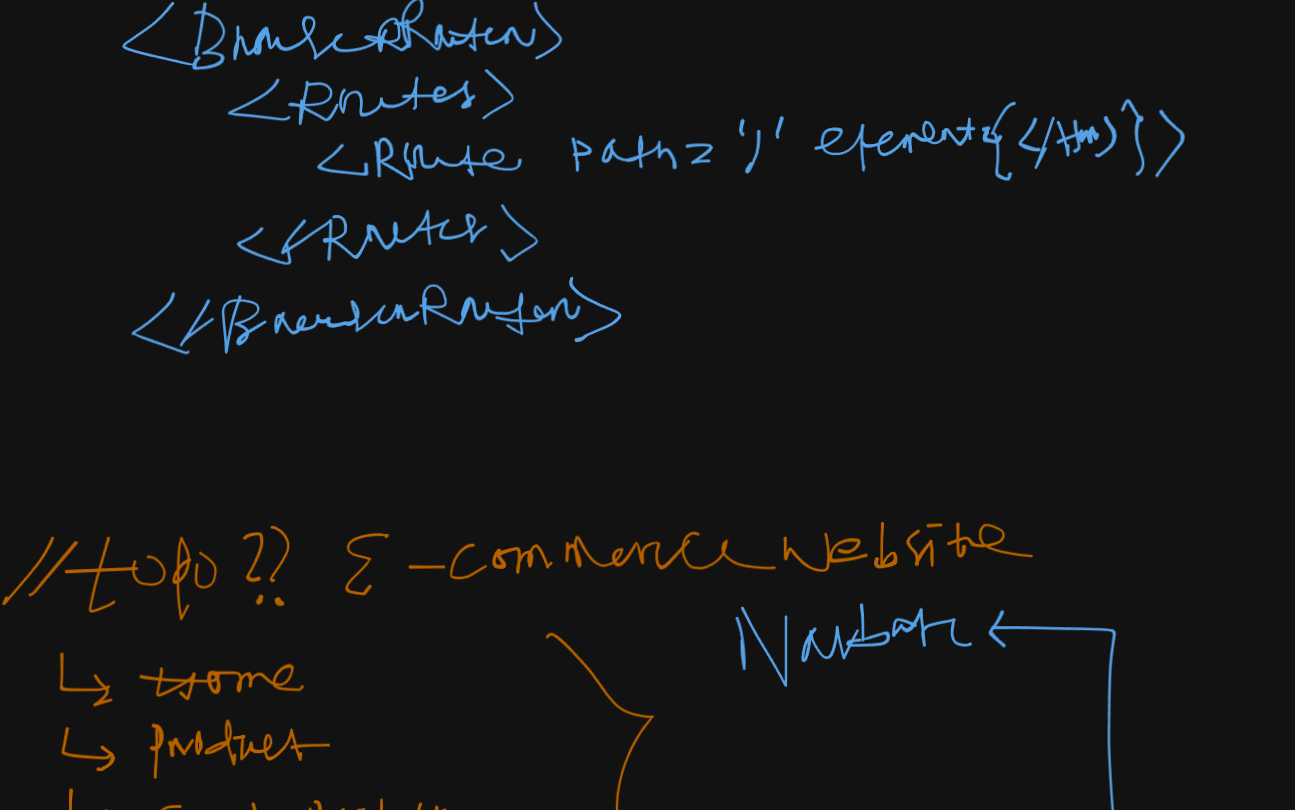 <BrowserRouter>
<Routes>
<Route path='/' element={</Hm>}>
</Routes>
</BrowserRouter>
//topo?? E-commerce website
Navbar
↳ Home
↳ Product